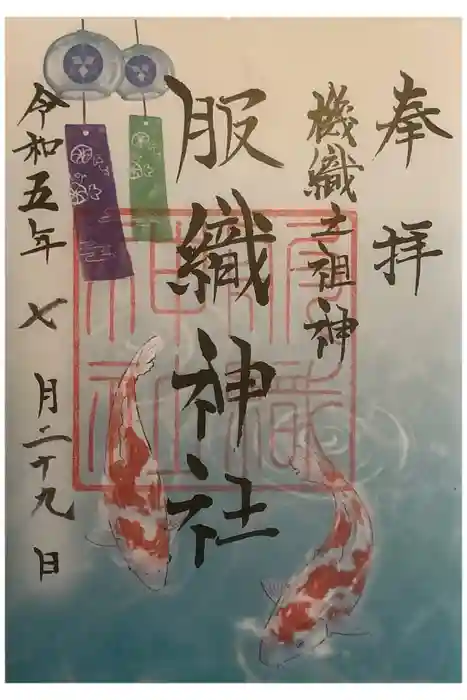 奉拝
機織之祖神
服織神社
令和五年七月二十九日